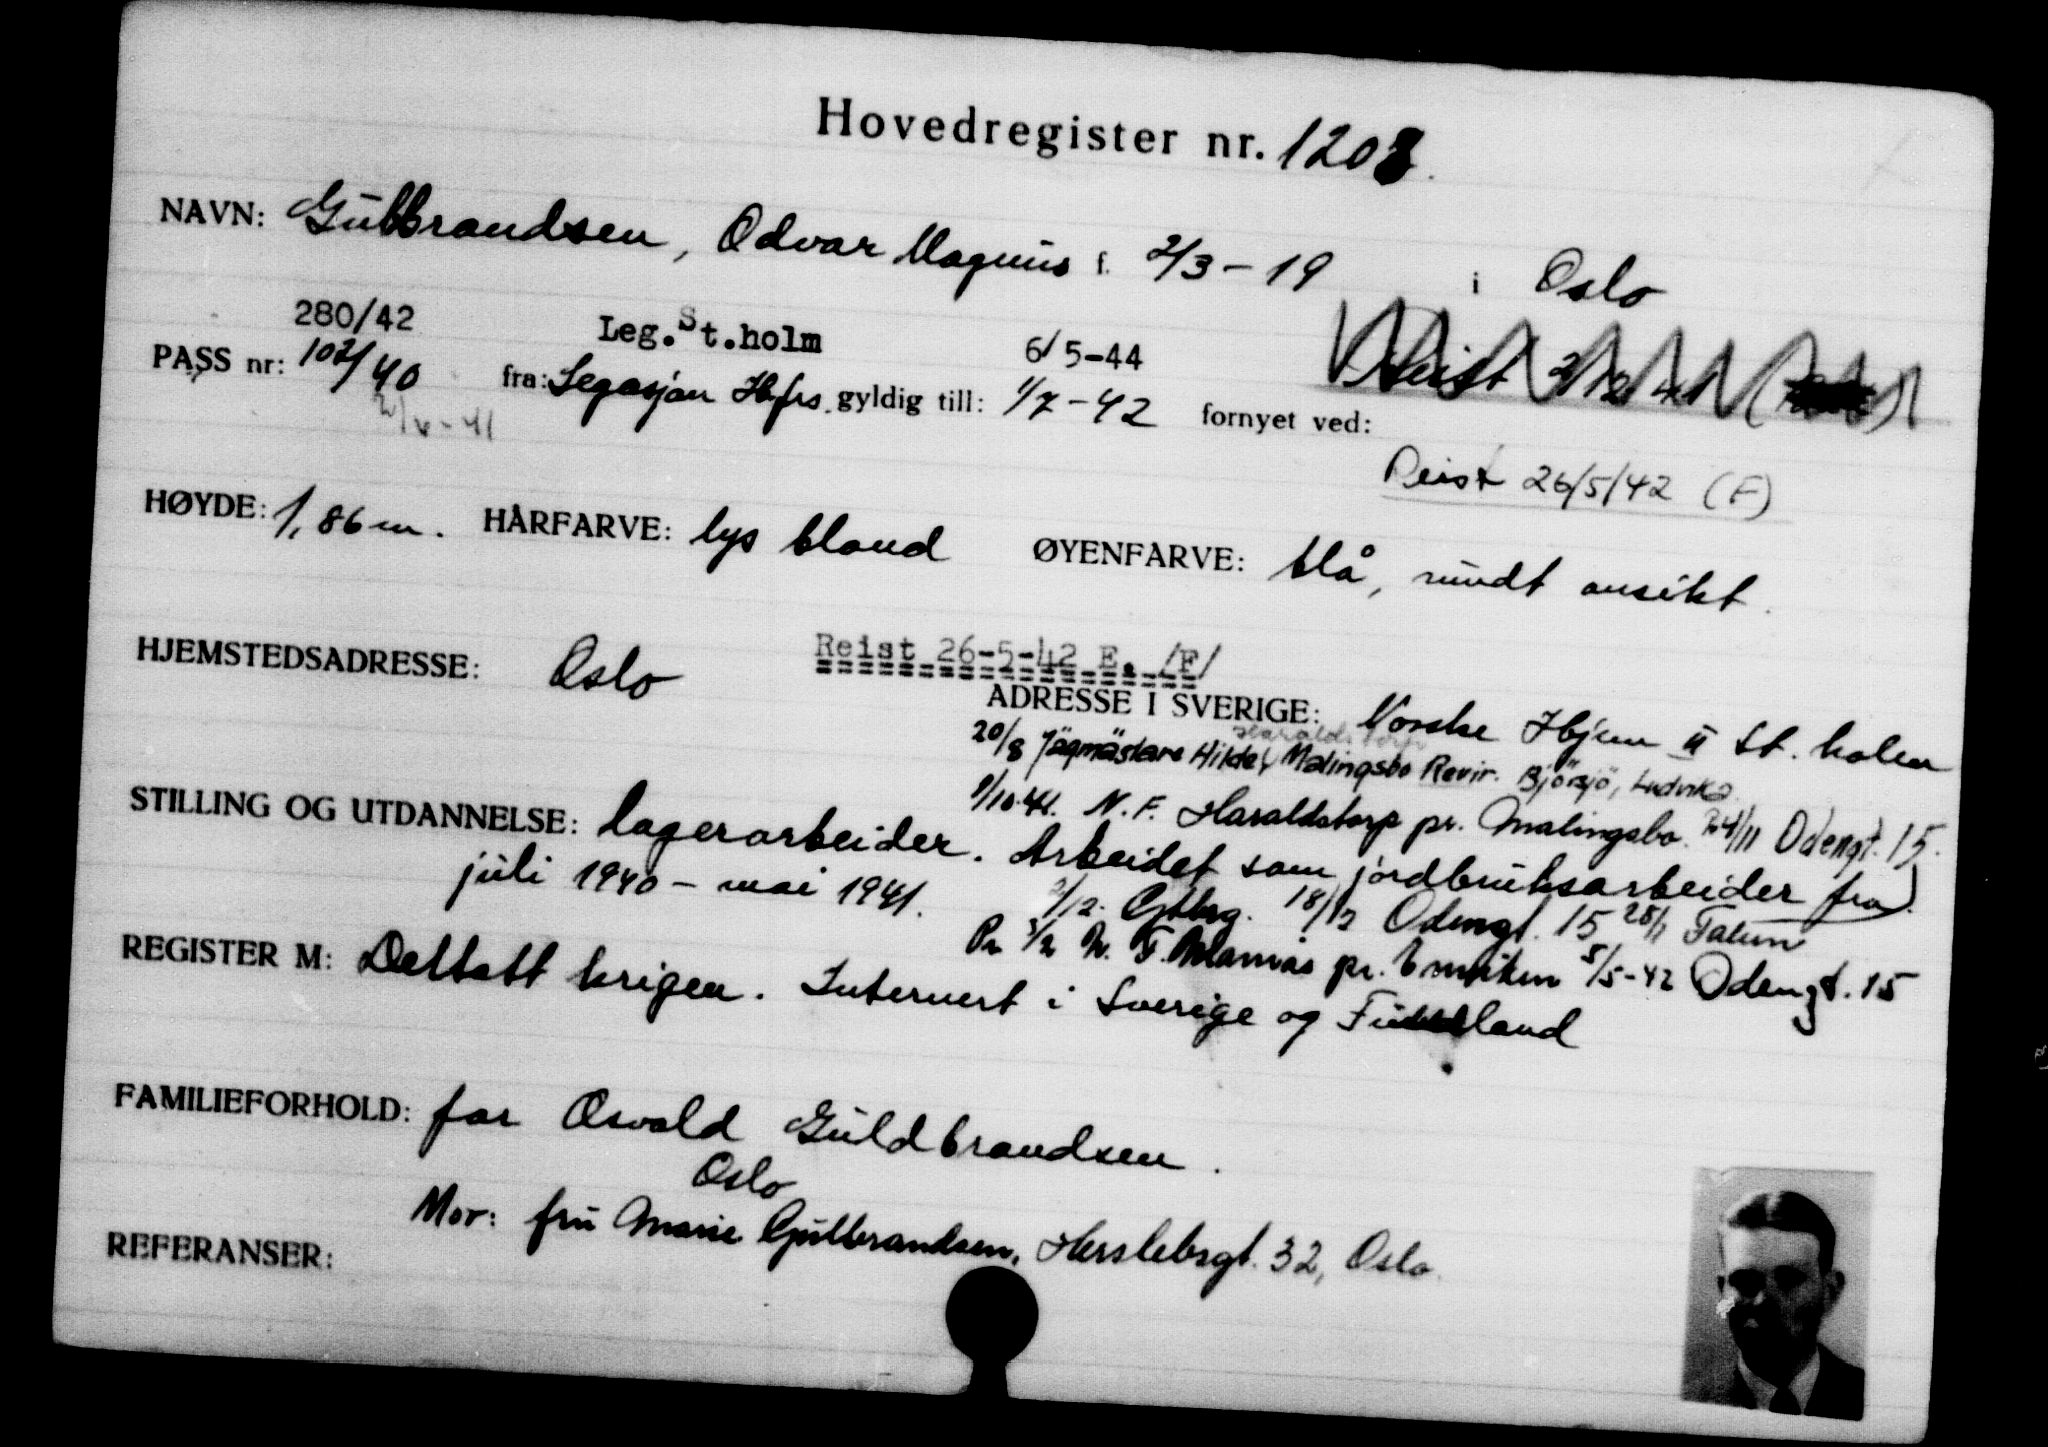 Hovedregister nr. 1208.
NAVN: Gulbrandsen, Odvar Magnus f. 2/3 - 19 i Oslo
280/42 Leg. St.holm 6/5-44
PASS nr: 102/40 fra: Legasjon Hfrs. gyldig till: 1/7 - 42 fornyet ved:
Reist 26/5/42 (F)
HØYDE: 1,86 m. HÅRFARVE: lys blond ØYENFARVE: blå, rundt ansikt.
Reist 26-5-42 E. /F/
HJEMSTEDSADRESSE: Oslo ADRESSE I SVERIGE: Norske Hjem II St. holm
20/8 Jägmästare Malingsbo Revir. Björsjö, Ludvika
9/10-41. N.F. Haraldstorp pr. Malingsbo. 4/11 Odengt. 15.
STILLING OG UTDANNELSE: lagerarbeider. Arbeidet som jordbruksarbeider fra
juli 1940 - mai 1941.
2/12. Gtbrg. 18/12 Odengt. 15 28/1 Falun
Pr 3/2 N. F. pr. 5/5-42 Odengt. 15
REGISTER M: Deltatt krigen. Internert i Sverige og Finnland
FAMILIEFORHOLD: far Osvald Guldbrandsen.
Oslo
Mor: fru Marie Gulbrandsen, Herslebsgt. 32, Oslo.
REFERANSER: